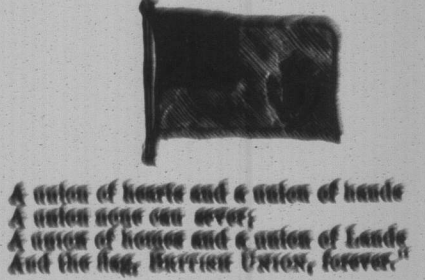 A union of hearts and a union of hands
A union none can sever;
A union of homes and a union of Lands
And the flag, British Union, forever."